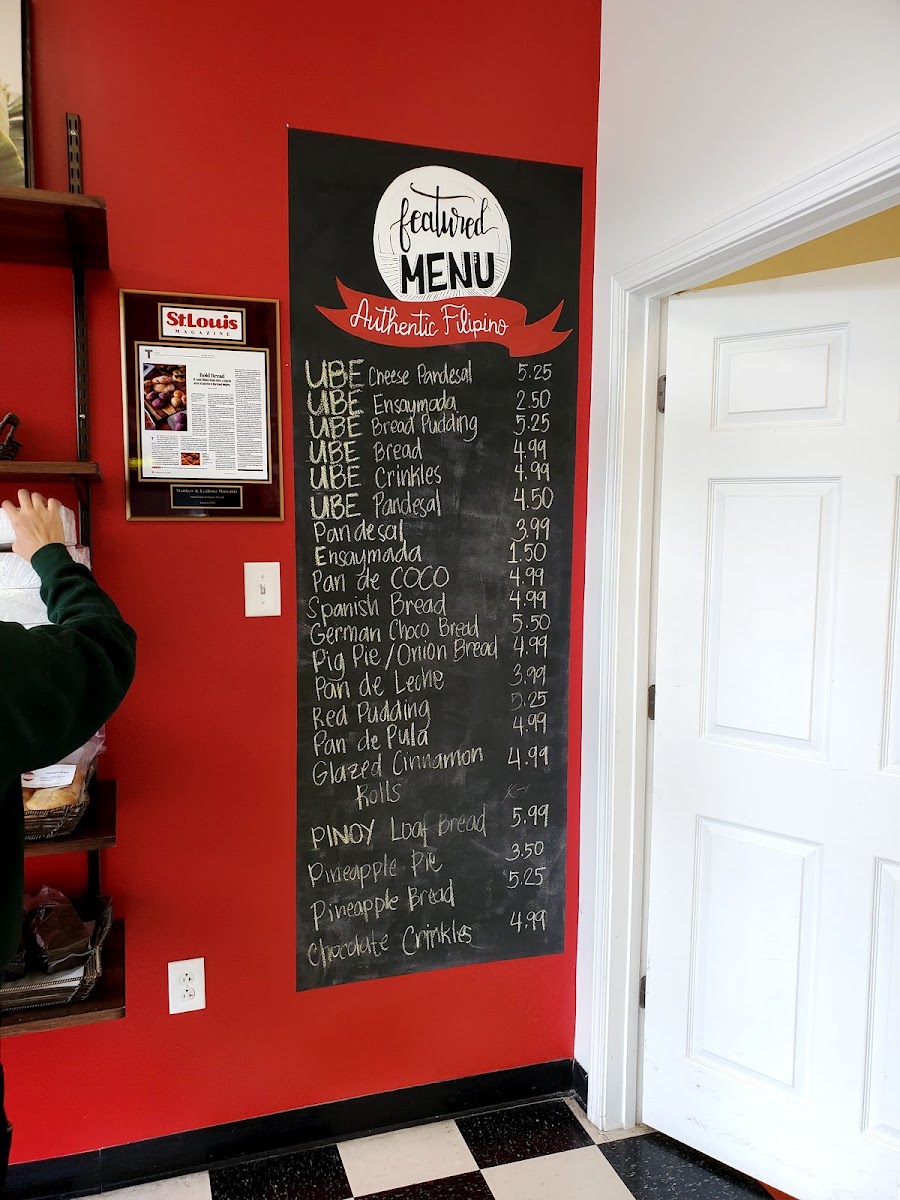 St.Louis
MAGAZINE
Bold Bread
featured
MENU
Authentic Filipino
UBE Cheese Pandesal 5.25
UBE Ensaymada 2.50
UBE Bread Pudding 5.25
UBE Bread 4.99
UBE Crinkles 4.99
UBE Pandesal 4.50
Pandesal 3.99
Ensaymada 1.50
Pan de COCO 4.99
Spanish Bread 4.99
German Choco Bread 5.50
Pig Pie/Onion Bread 4.99
Pan de Leche 3.99
Red Pudding 5.25
Pan de Pula 4.99
Glazed Cinnamon 4.99
Rolls
PINOY Loaf Bread 5.99
Pineapple Pie 3.50
Pineapple Bread 5.25
Chocolate Crinkles 4.99